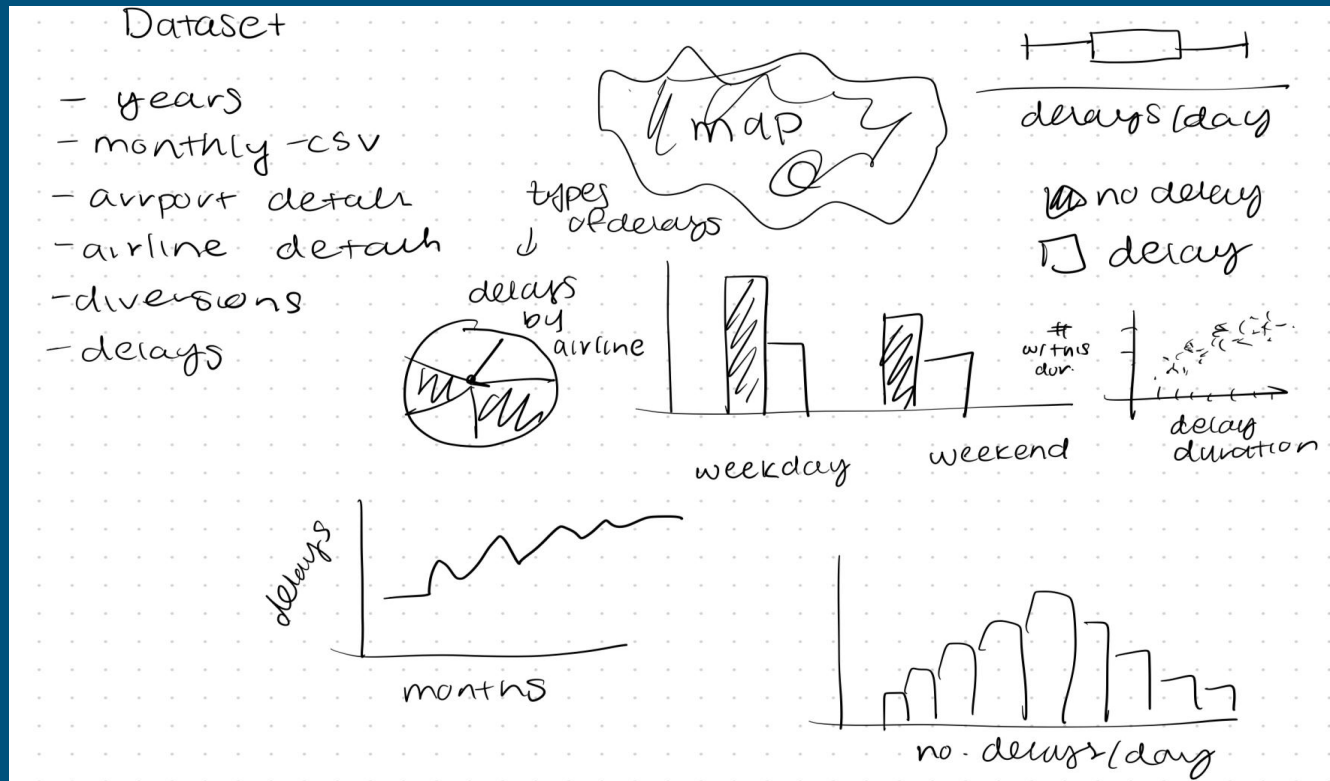 Dataset
- years
- monthly-csv
- airport details
- airline details
- diversions
- delays
map
delays/day
no delay
delay
types
of delays
delays
by
airline
weekday
weekend
#
w/this
dur.
delay
duration
delays
months
no. delays/day